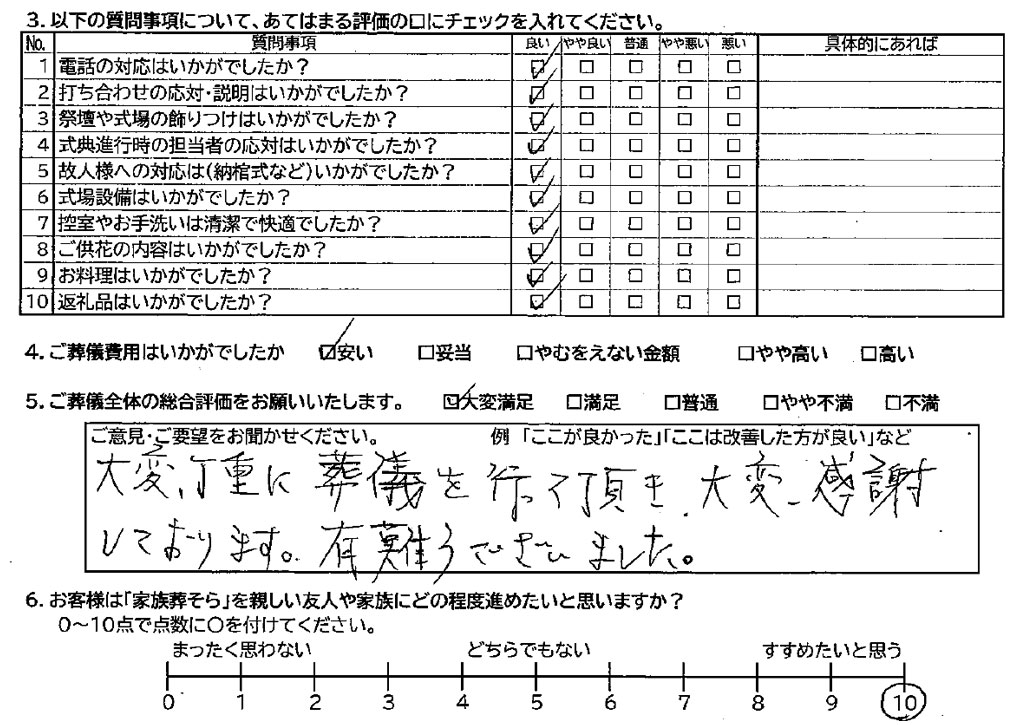 3. 以下の質問事項について、あてはまる評価の口にチェックを入れてください。
No. 質問事項 良い やや良い 普通 やや悪い 悪い 具体的にあれば
1 電話の対応はいかがでしたか? ☑ □ □ □ □
2 打ち合わせの応対・説明はいかがでしたか? ☑ □ □ □ □
3 祭壇や式場の飾りつけはいかがでしたか? ☑ □ □ □ □
4 式典進行時の担当者の応対はいかがでしたか? ☑ □ □ □ □
5 故人様への対応は(納棺式など)いかがでしたか? ☑ □ □ □ □
6 式場設備はいかがでしたか? ☑ □ □ □ □
7 控室やお手洗いは清潔で快適でしたか? ☑ □ □ □ □
8 ご供花の内容はいかがでしたか? ☑ □ □ □ □
9 お料理はいかがでしたか? ☑ □ □ □ □
10 返礼品はいかがでしたか? ☑ □ □ □ □
4. ご葬儀費用はいかがでしたか ☑安い □妥当 □やむをえない金額 □やや高い □高い
5. ご葬儀全体の総合評価をお願いいたします。 ☑大変満足 □満足 □普通 □やや不満 □不満
ご意見・ご要望をお聞かせください。 例 「ここが良かった」「ここは改善した方が良い」など
大変、丁重に葬儀を行って頂き、大変、感謝
しております。有難うございました。
6. お客様は「家族葬そら」を親しい友人や家族にどの程度進めたいと思いますか?
0〜10点で点数に○を付けてください。
まったく思わない どちらでもない すすめたいと思う
0 1 2 3 4 5 6 7 8 9 10